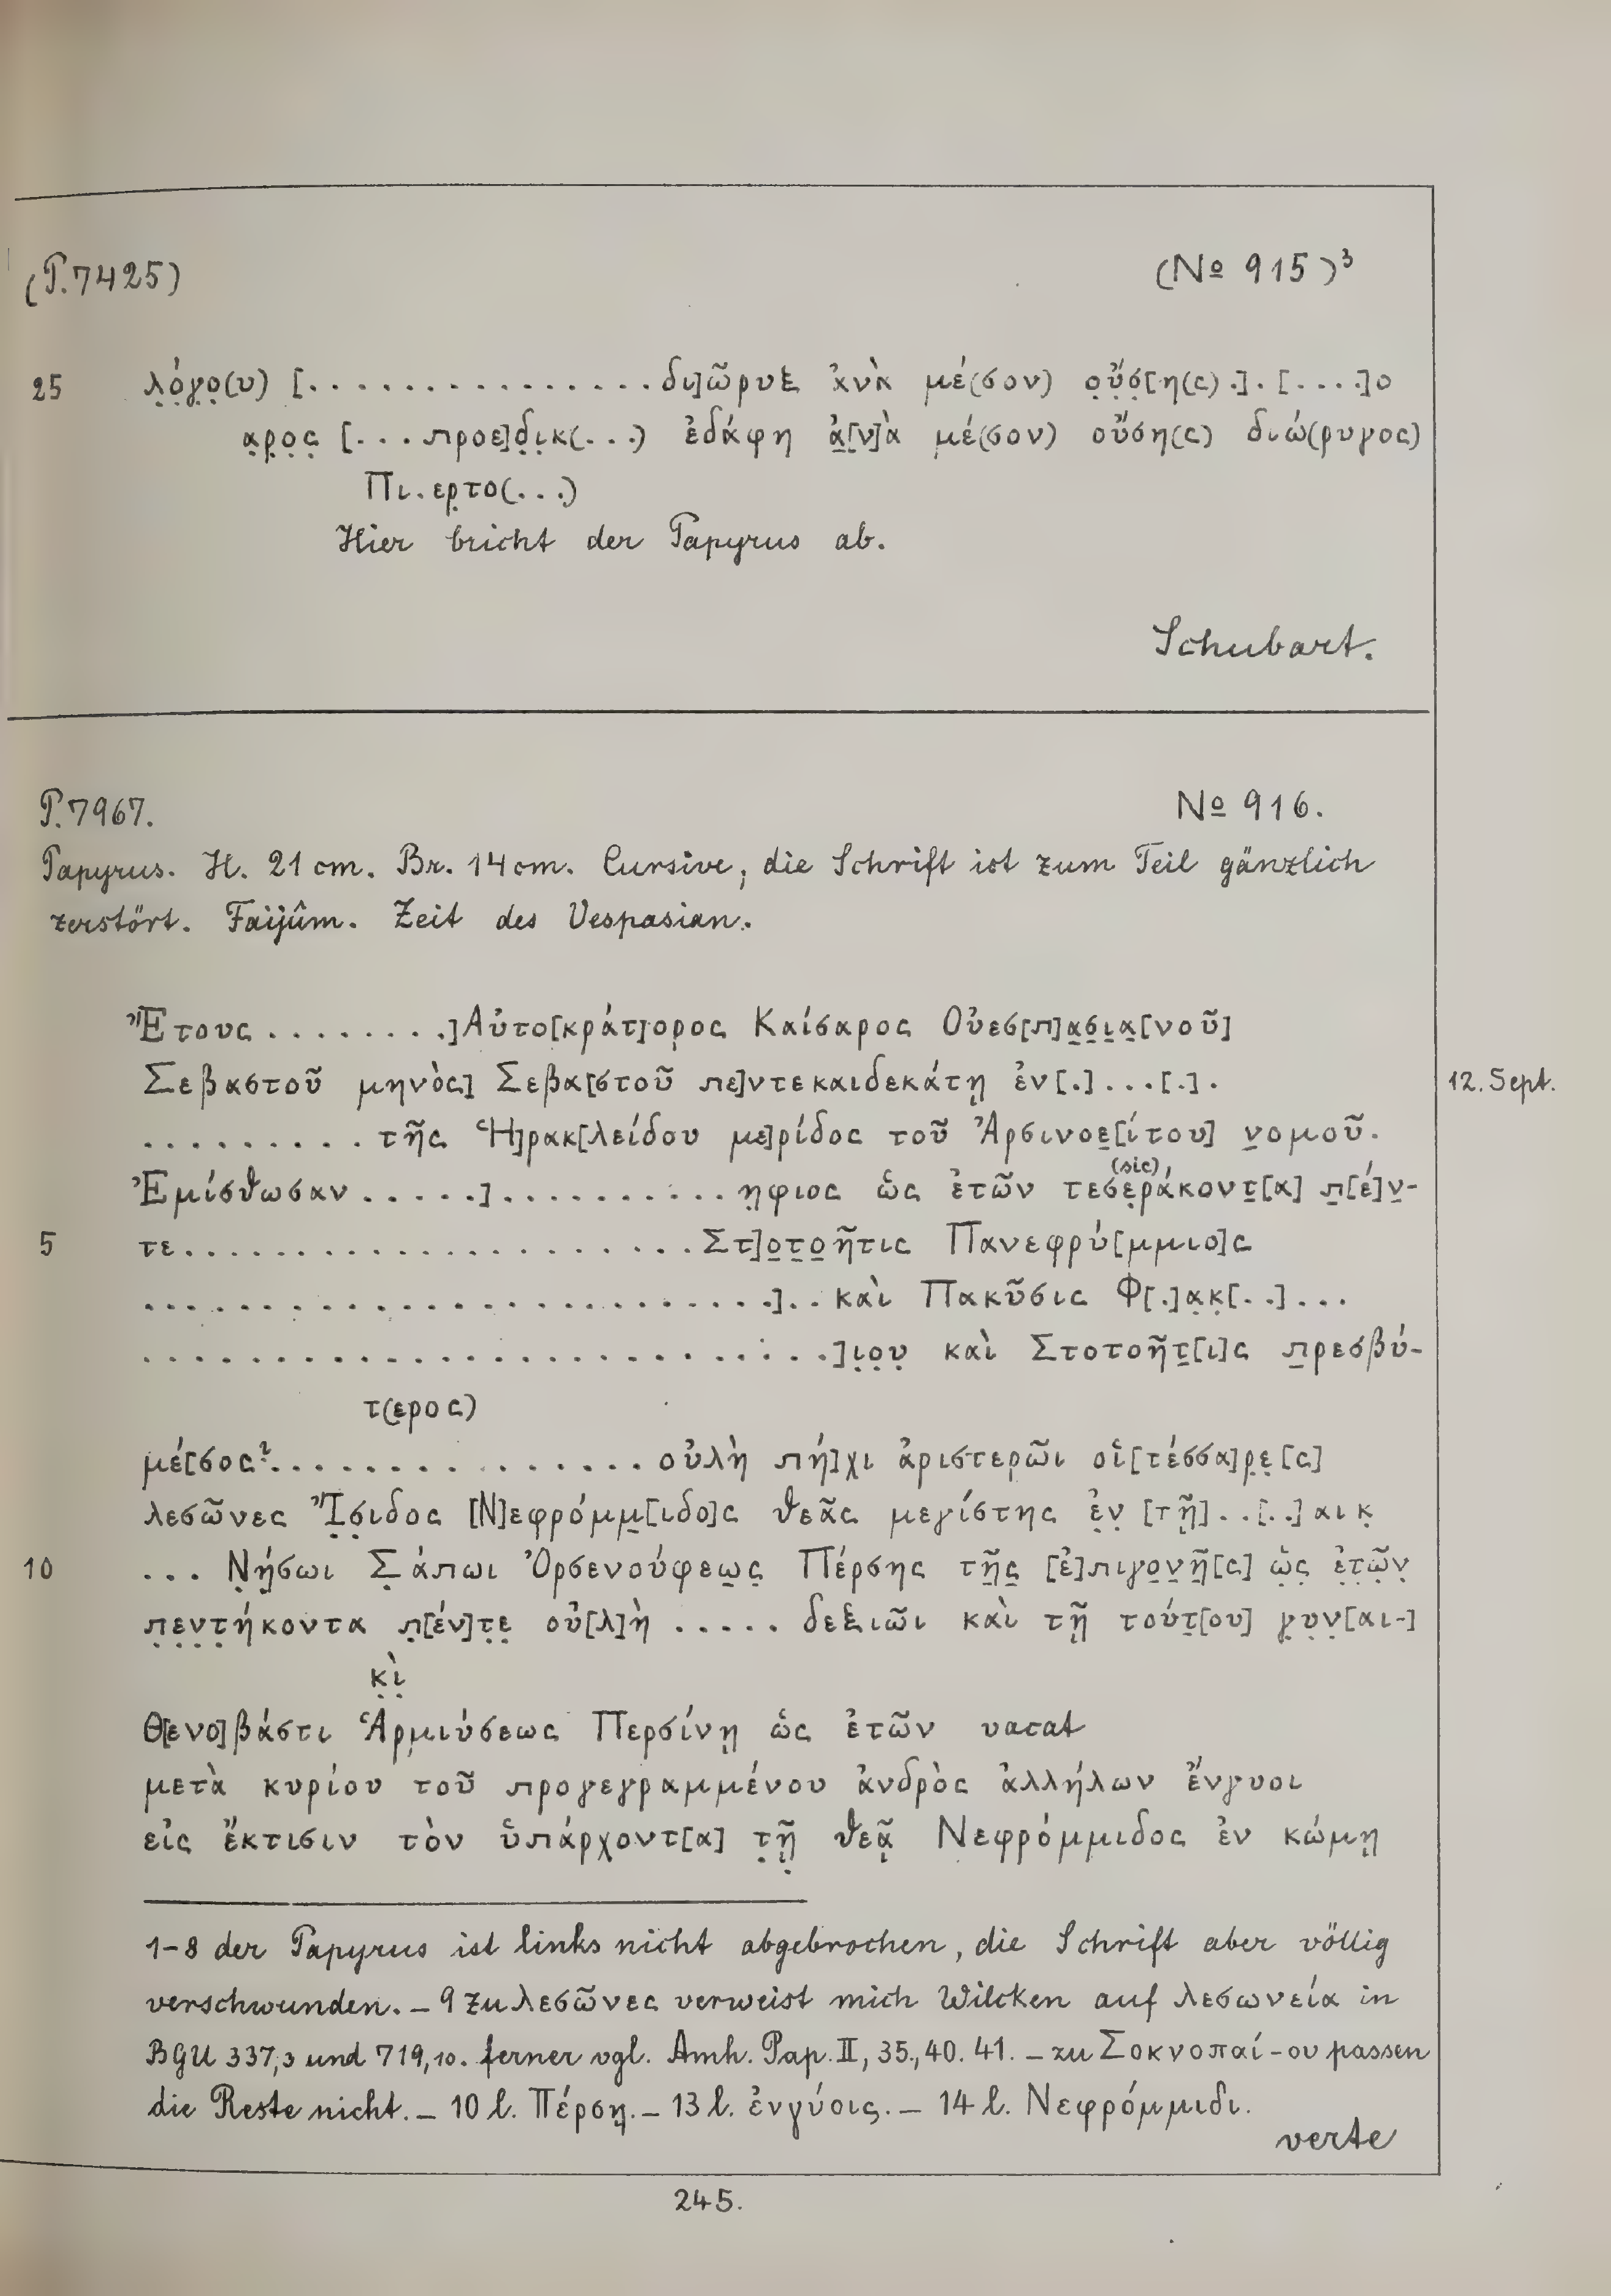 (P.7425) (No 915)³
25 λ̣ό̣γ̣ο̣(υ) [................δι]ῶρυξ ἀνὰ μέ(σον) ο̣ὔ̣σ̣[η(ς) .].[....]ο
α̣ρ̣ο̣ς̣ [...προε]δ̣ι̣κ(...) ἐδάφη ἀ̣[ν]ὰ μέ(σον) οὔση(ς) διώ(ρυγος)
Πι.ερ̣το(...)
Hier bricht der Papyrus ab.
Schubart.
P.7967. No 916.
Papyrus. H. 21 cm. Br. 14 cm. Cursive, die Schrift ist zum Teil gänzlich
zerstört. Faijûm. Zeit des Vespasian.
Ἔτους.........]Αὐτο[κράτ]ορος Καίσαρος Οὐεσ[π]α̣σ̣ι̣α̣[νοῦ]
Σεβαστοῦ μηνὸς] Σεβα[στοῦ πε]ντεκαιδεκάτῃ ἐν[.]...[.]. 12. Sept.
.........τῆς Ἡ]ρακ[λείδου με]ρίδος τοῦ Ἀρσινοε̣[ίτου] ν̣ομοῦ.
(sic)
Ἐμίσθωσαν.....]..........η̣φιος ὡς ἐτῶν τεσε̣ράκοντ̣[α] π̣[έ]ν̣-
5 τε.....................Στ]ο̣τ̣ο̣ῆτις Πανεφρύ[μμιο]ς
..........................]..καὶ Πακῦσις Φ[.]α̣κ̣[..]...
............................]ι̣ο̣υ̣ καὶ Στοτοῆτ̣[ι]ς π̣ρεσβύ-
τ(ερος)
μέ[σος?................οὐλὴ πή]χι ἀριστερῶι οἱ[τέσσα]ρ̣ε̣[ς]
λεσῶνες Ἴ̣σ̣ιδος [Ν]εφρόμμ̣[ιδο]ς θεᾶς μεγίστης ἐ̣ν̣ [τῇ]..[..]αικ̣
10 ... Ν̣ή̣σωι Σ̣άπωι Ὀρσενούφεω̣ς̣ Πέρσης τῆ̣ς̣ [ἐ]πιγο̣ν̣ῆ̣[ς] ὡ̣ς̣ ἐ̣τ̣ῶ̣ν̣
π̣ε̣ν̣τ̣ήκοντα π̣[έν]τ̣ε̣ οὐ[λ]ὴ ..... δεξιῶι καὶ τῇ τούτ̣[ου] γ̣υ̣ν̣[αι-]
κ̣ὶ̣
Θ[ενο]βάστι Ἁρμιύσεως Περσίνῃ ὡς ἐτῶν vacat
μετὰ κυρίου τοῦ προγεγραμμένου ἀνδρὸς ἀλλήλων ἔνγυοι
εἰς ἔκτισιν τὸν ὑπάρχοντ[α] τ̣ῇ̣ θεᾷ Νεφρόμμιδος ἐν κώμῃ
1-8 der Papyrus ist links nicht abgebrochen, die Schrift aber völlig
verschwunden. – 9 zu λεσῶνες verweist mich Wilcken auf λεσωνεία in
BGU 337,3 und 719,10. ferner vgl. Amh. Pap. II, 35., 40. 41. – zu Σοκνοπαί-ου passen
die Reste nicht. – 10 l. Πέρσῃ. – 13 l. ἐνγύοις. – 14 l. Νεφρόμμιδι.
verte
245.